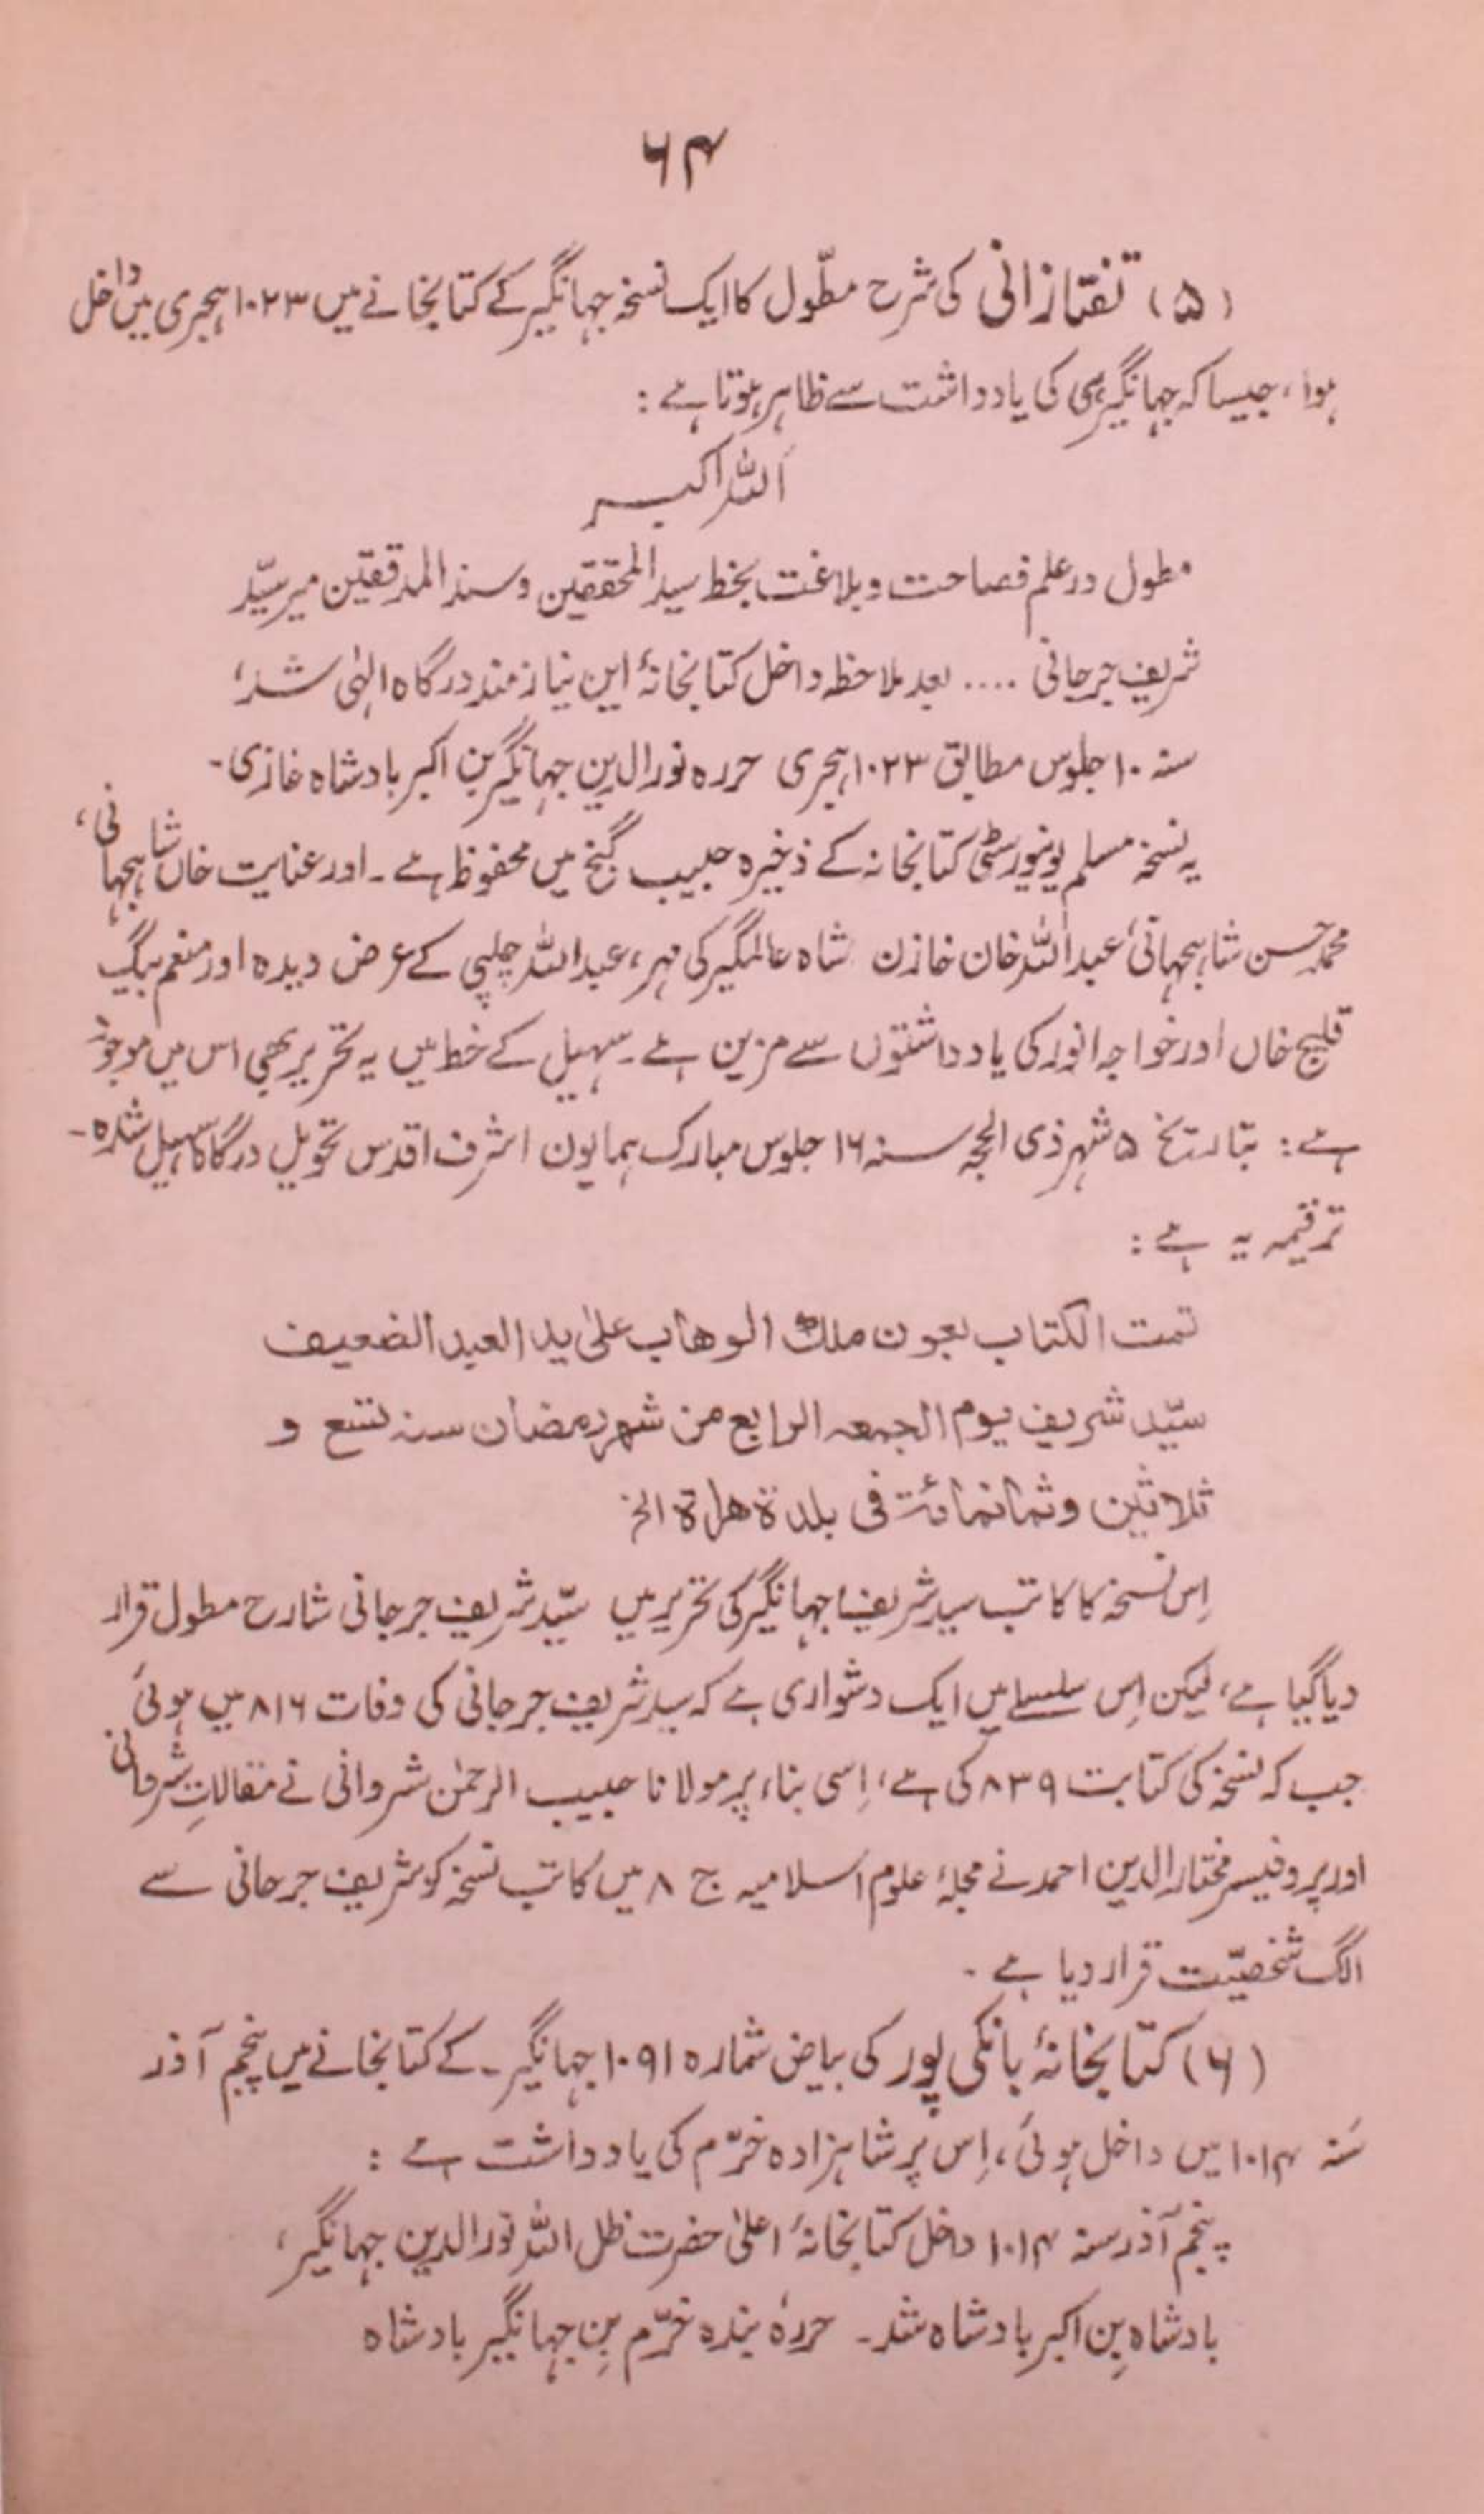 ۶۴
(۵) تفتازانی کی شرح مطّول کا ایک نسخہ جہانگیر کے کتابخانے میں ۱۰۲۳ ہجری میں داخل
ہوا، جیسا کہ جہانگیر ہی کی یادداشت سے ظاہر ہوتا ہے :
اَللہ اکبر
مطول در علم فصاحت و بلاغت بخط سید المحققین و سند المدققین میر سیّد
شریف جرجانی .... بعد ملاحظہ داخل کتابخانۂ این نیازمند درگاہ الہٰی شد،
سنہ ۱۰ جلوس مطابق ۱۰۲۳ ہجری حررہ نورالدین جہانگیر بن اکبر بادشاہ غازی۔
یہ نسخہ مسلم یونیورسٹی کتابخانہ کے ذخیرہ حبیب گنج میں محفوظ ہے۔ اور عنایت خاں شاہجہانی،
محمد حسن شاہجہانی، عبداللہ خان خازن شاہ عالمگیر کی مہر، عبداللہ چلپی کے عرض دیدہ اور منعم بیگ
قلیج خاں اور خواجہ انور کی یادداشتوں سے مزین ہے۔ سہیل کے خط میں یہ تحریر بھی اس میں موجود
ہے : بتاریخ ۵ شہر ذی الحجہ سنہ ۱۶ جلوس مبارک ہمایون اشرف اقدس تحویل درگاہ سہیل شدہ۔
ترقیمہ یہ ہے :
تمت الکتاب بعون ملک الوھاب علیٰ ید العبد الضعیف
سیّد شریف یوم الجمعہ الرابع من شھر رمضان سنہ تسع و
ثلاثین وثمانمائۃ فی بلدۃ ھراۃ الخ
اِس نسخہ کا کاتب سید شریف، جہانگیر کی تحریر میں سیّد شریف جرجانی شارح مطول قرار
دیا گیا ہے، لیکن اِس سلسلے میں ایک دشواری ہے کہ سید شریف جرجانی کی وفات ۸۱۶ میں ہوئی
جب کہ نسخہ کی کتابت ۸۳۹ کی ہے، اِسی بناء پر مولانا حبیب الرحمٰن شروانی نے مقالاتِ شروانی
اور پروفیسر مختارالدین احمد نے مجلۂ علوم اسلامیہ ج ۸ میں کاتب نسخہ کو شریف جرجانی سے
الگ شخصیّت قرار دیا ہے ۔
(۶) کتابخانۂ بانکی پور کی بیاض شمارہ ۱۰۹۱ جہانگیر۔ کے کتابخانے میں پنجم آذر
سَنہ ۱۰۱۴ میں داخل ہوئی، اِس پر شاہزادہ خرّم کی یادداشت ہے :
پنجم آذر سنہ ۱۰۱۴ داخل کتابخانۂ اعلیٰ حضرت ظل اللہ نورالدین جہانگیر،
بادشاہ بِن اکبر بادشاہ شد۔ حررہٗ بندہ خرّم بِن جہانگیر بادشاہ